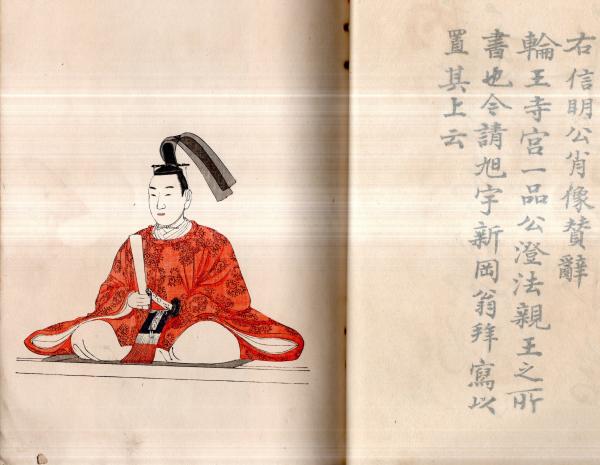 右信明公肖像賛辭
輪王寺宮一品公澄法親王之所
書也今請旭宇新岡翁拜寫以
置其上云